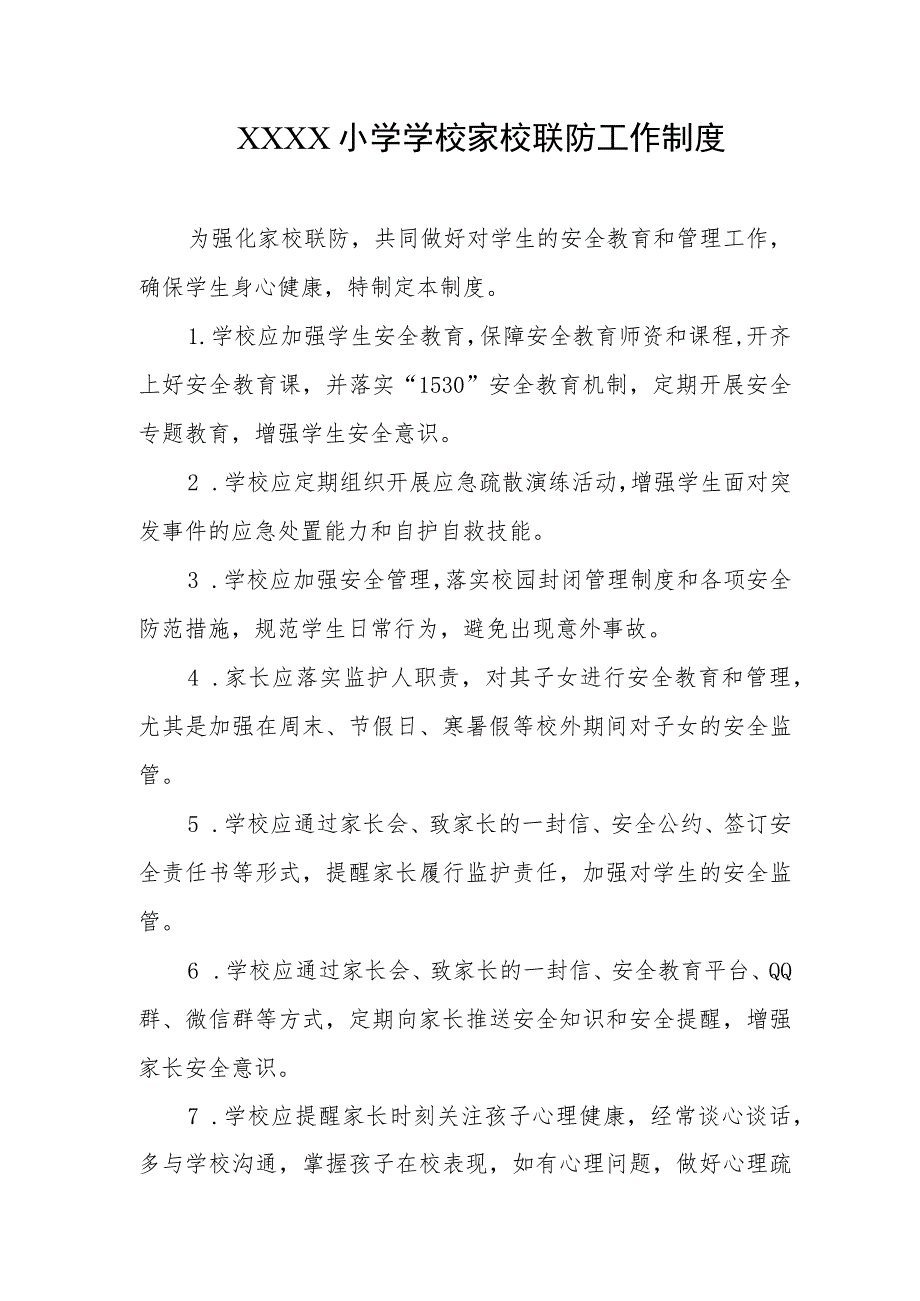 XXXX 小学学校家校联防工作制度
为强化家校联防，共同做好对学生的安全教育和管理工作，
确保学生身心健康，特制定本制度。
1.学校应加强学生安全教育,保障安全教育师资和课程,开齐
上好安全教育课，并落实“1530”安全教育机制，定期开展安全
专题教育，增强学生安全意识。
2 .学校应定期组织开展应急疏散演练活动,增强学生面对突
发事件的应急处置能力和自护自救技能。
3 .学校应加强安全管理,落实校园封闭管理制度和各项安全
防范措施，规范学生日常行为，避免出现意外事故。
4 .家长应落实监护人职责，对其子女进行安全教育和管理，
尤其是加强在周末、节假日、寒暑假等校外期间对子女的安全监
管。
5 .学校应通过家长会、致家长的一封信、安全公约、签订安
全责任书等形式，提醒家长履行监护责任，加强对学生的安全监
管。
6 .学校应通过家长会、致家长的一封信、安全教育平台、QQ
群、微信群等方式，定期向家长推送安全知识和安全提醒，增强
家长安全意识。
7 .学校应提醒家长时刻关注孩子心理健康，经常谈心谈话，
多与学校沟通，掌握孩子在校表现，如有心理问题，做好心理疏